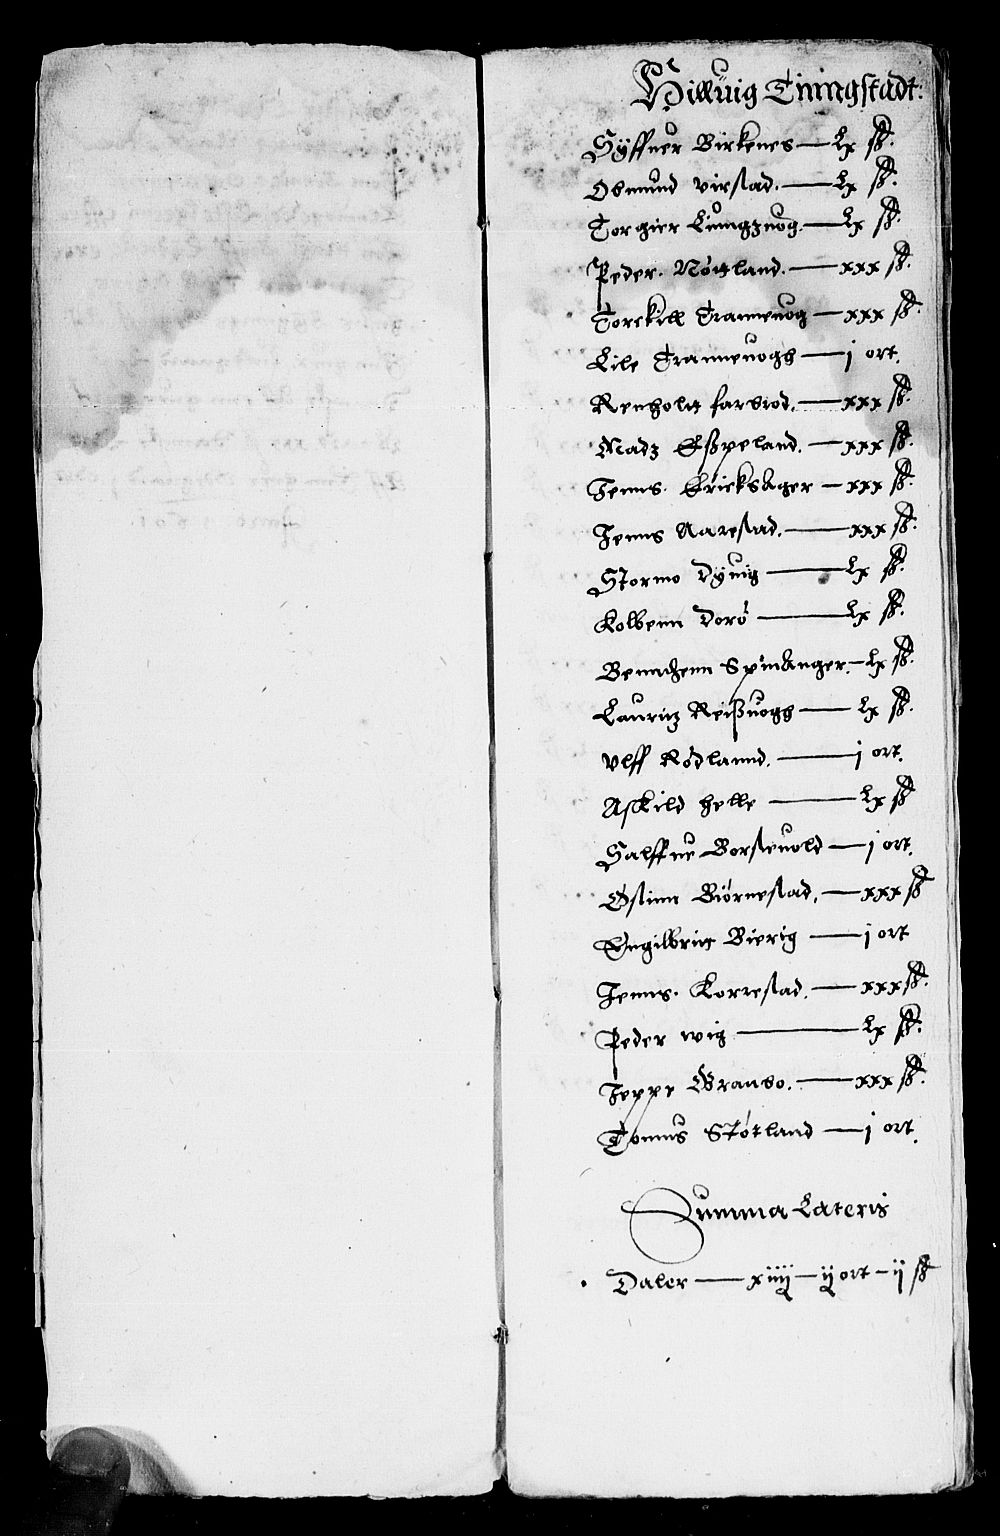 Hilluig Tningstadt.
Syffuer Birkenes — Lx ß.
Osmund virstad. — Lx ß.
Torgier Luingzuog. — Lx ß.
Peder. Nøttland. — xxx ß.
Torckill Tranneuog — xxx ß.
Lile Tranneuogh — j ort.
Renholtt farsiod. — xxx ß.
Madz Eßpeland. — xxx ß.
Jenns. Ericksager — xxx ß.
Jenns Aarestad. — xxx ß.
Stormo Dyuig — Lx ß.
Kolbenn Dorø — Lx ß.
Benndzenn Spindanger. — Lx ß.
Lauritz Reißuogh — Lx ß.
Vlff Rødlannd. — j ort.
Askild helle — Lx ß
Halffue Borsteuold — j ort.
Østinn Biørnestad. — xxx ß
Engilbritt Bierig — j ort
Jenns. Korrestad. — xxx ß.
Peder wig — Lx ß.
Jeppe Granso. — xxx ß.
Tomus Støtland — j ort.
Summa Lateris
Daler — xiiij — ij ort — ij ß